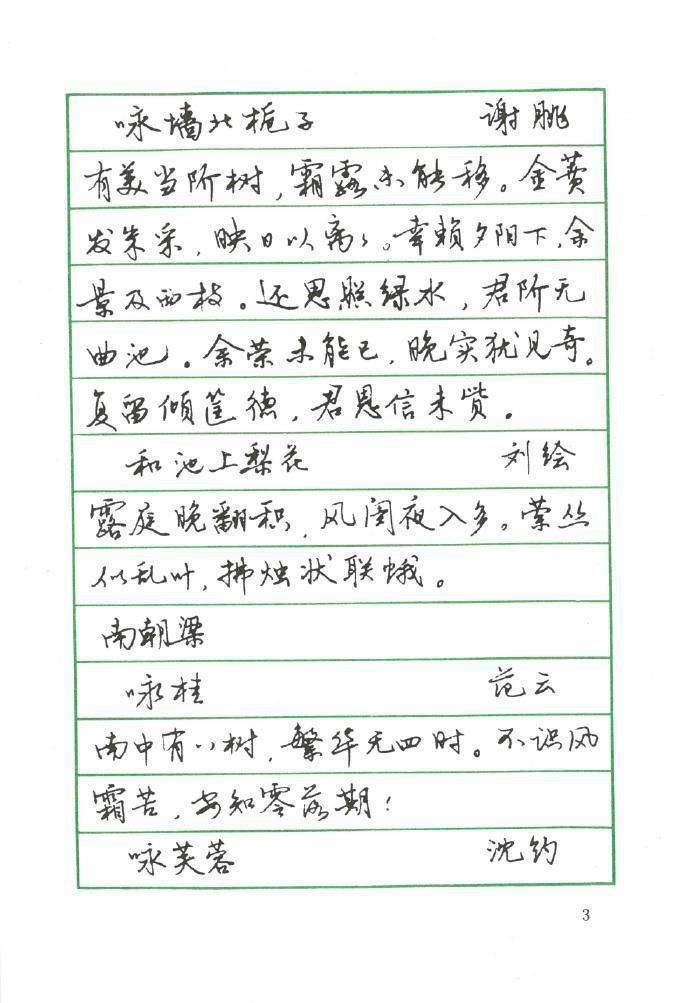 咏墙北栀子 谢朓
有美当阶树，霜露未能移。金蕡
发朱采，映日以离々。幸赖夕阳下，余
景及西枝。还思照绿水，君阶无
曲池。余荣未能已，晚实犹见奇。
复留倾筐德，君恩信未赀。
和池上梨花 刘绘
露庭晚翻积，风闺夜入多。萦丛
似乱叶，拂烛状联蛾。
南朝梁
咏桂 范云
南中有八树，繁华无四时。不识风
霜苦，安知零落期！
咏芙蓉 沈约
3